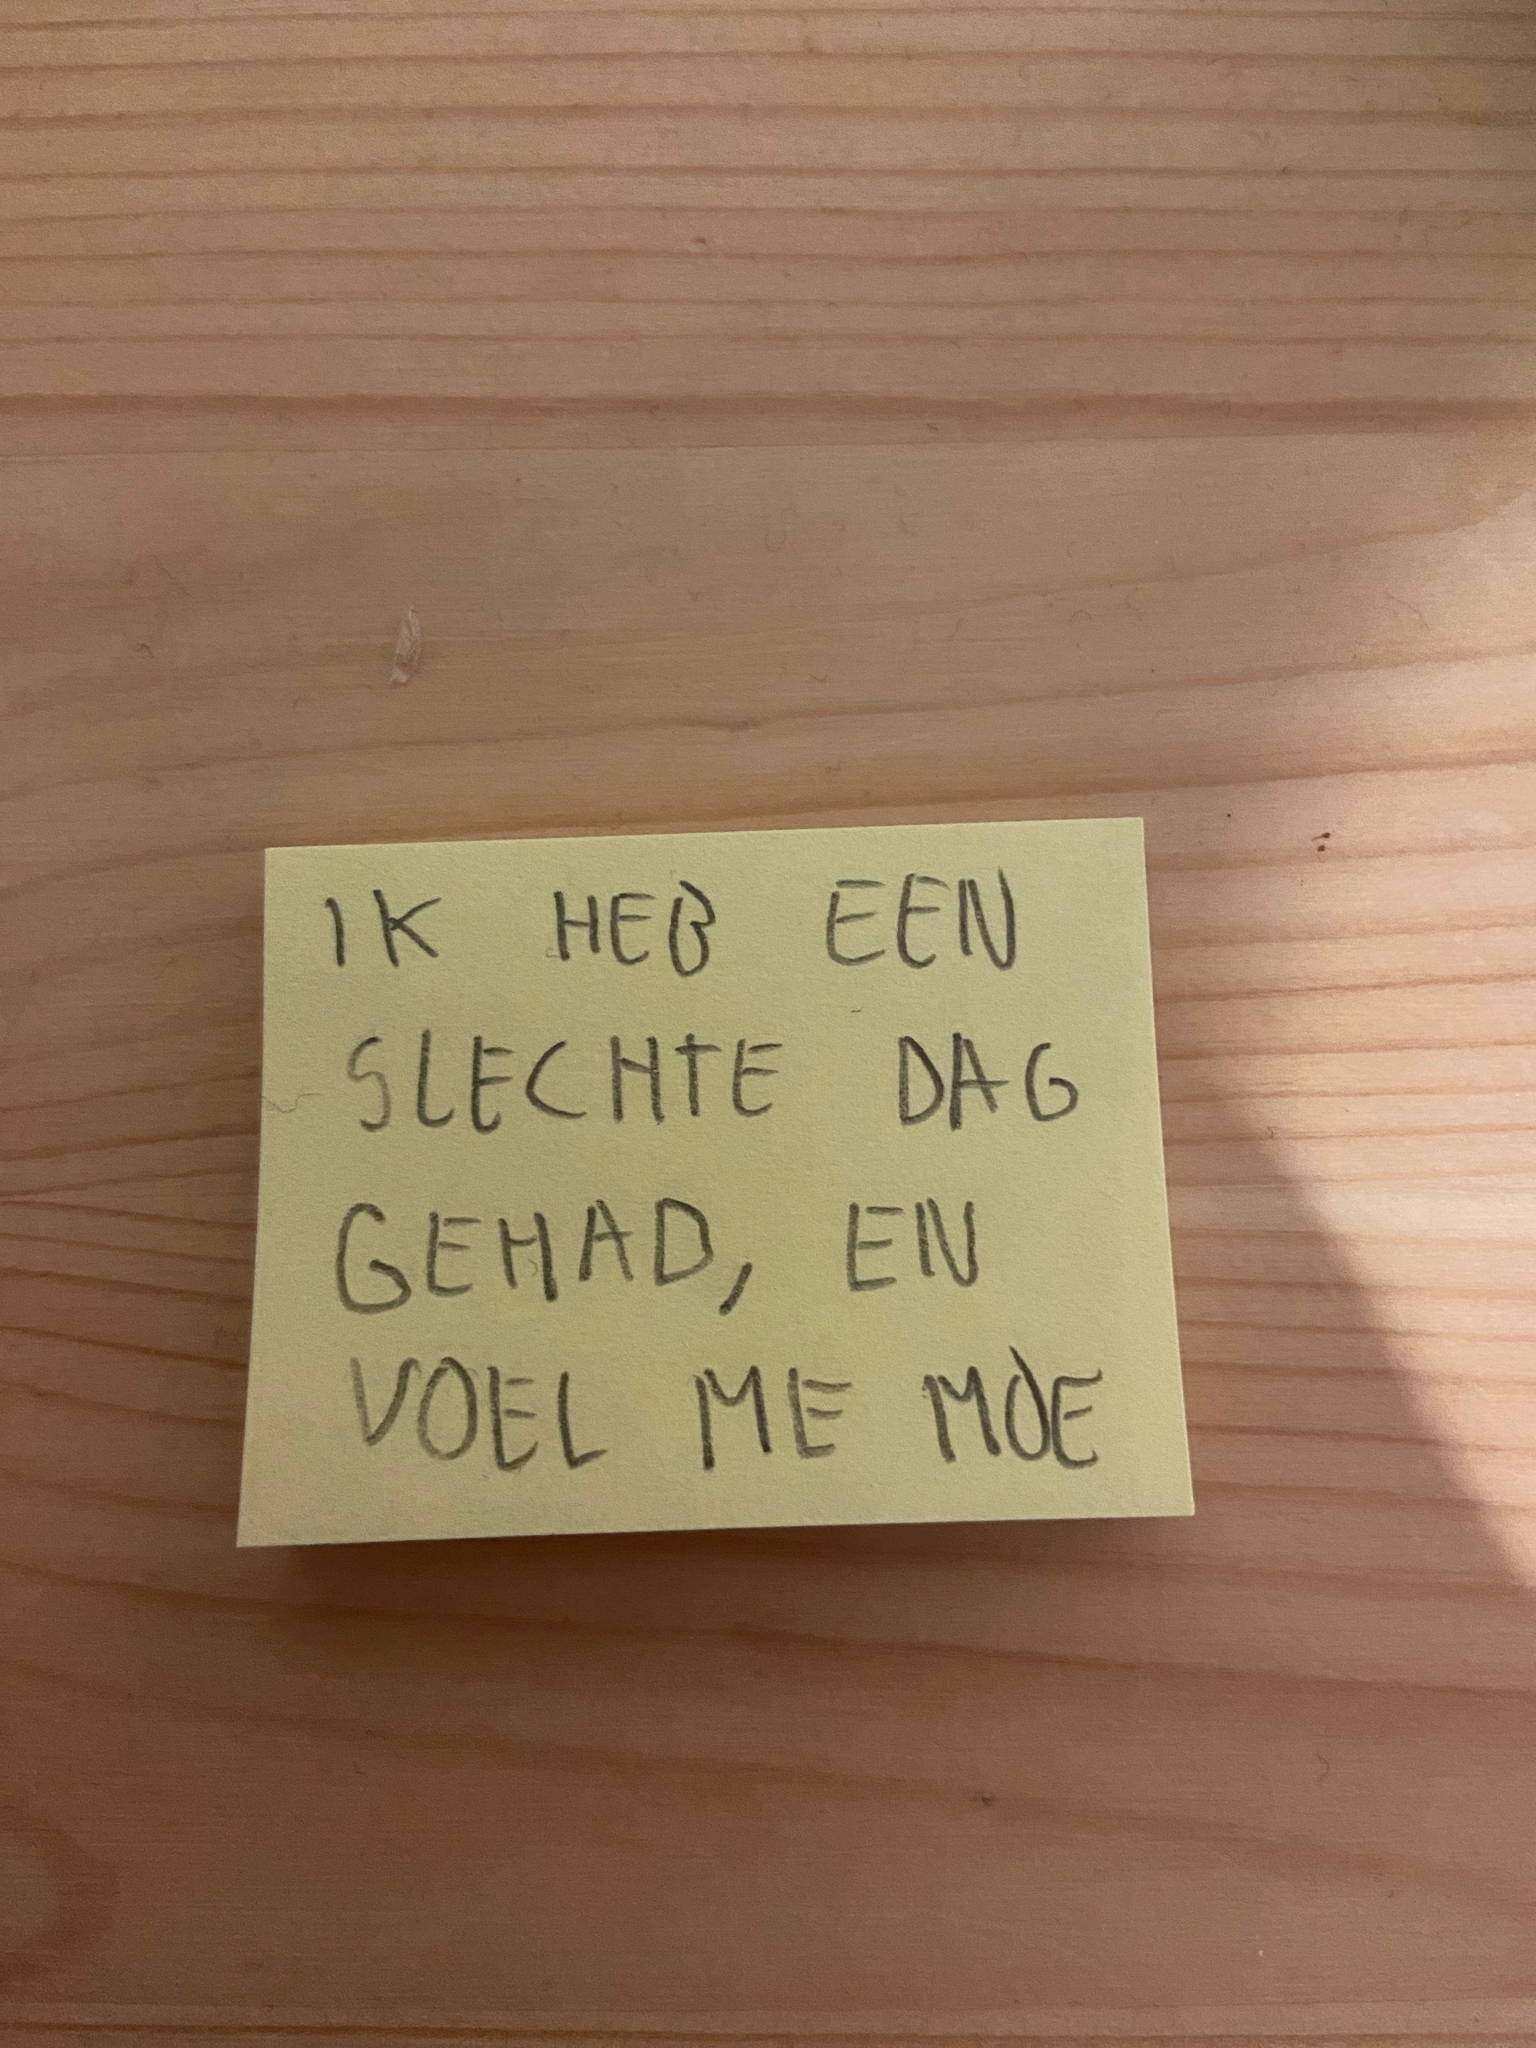 IK HEB EEN
SLECHTE DAG
GEHAD, EN
VOEL ME MOE